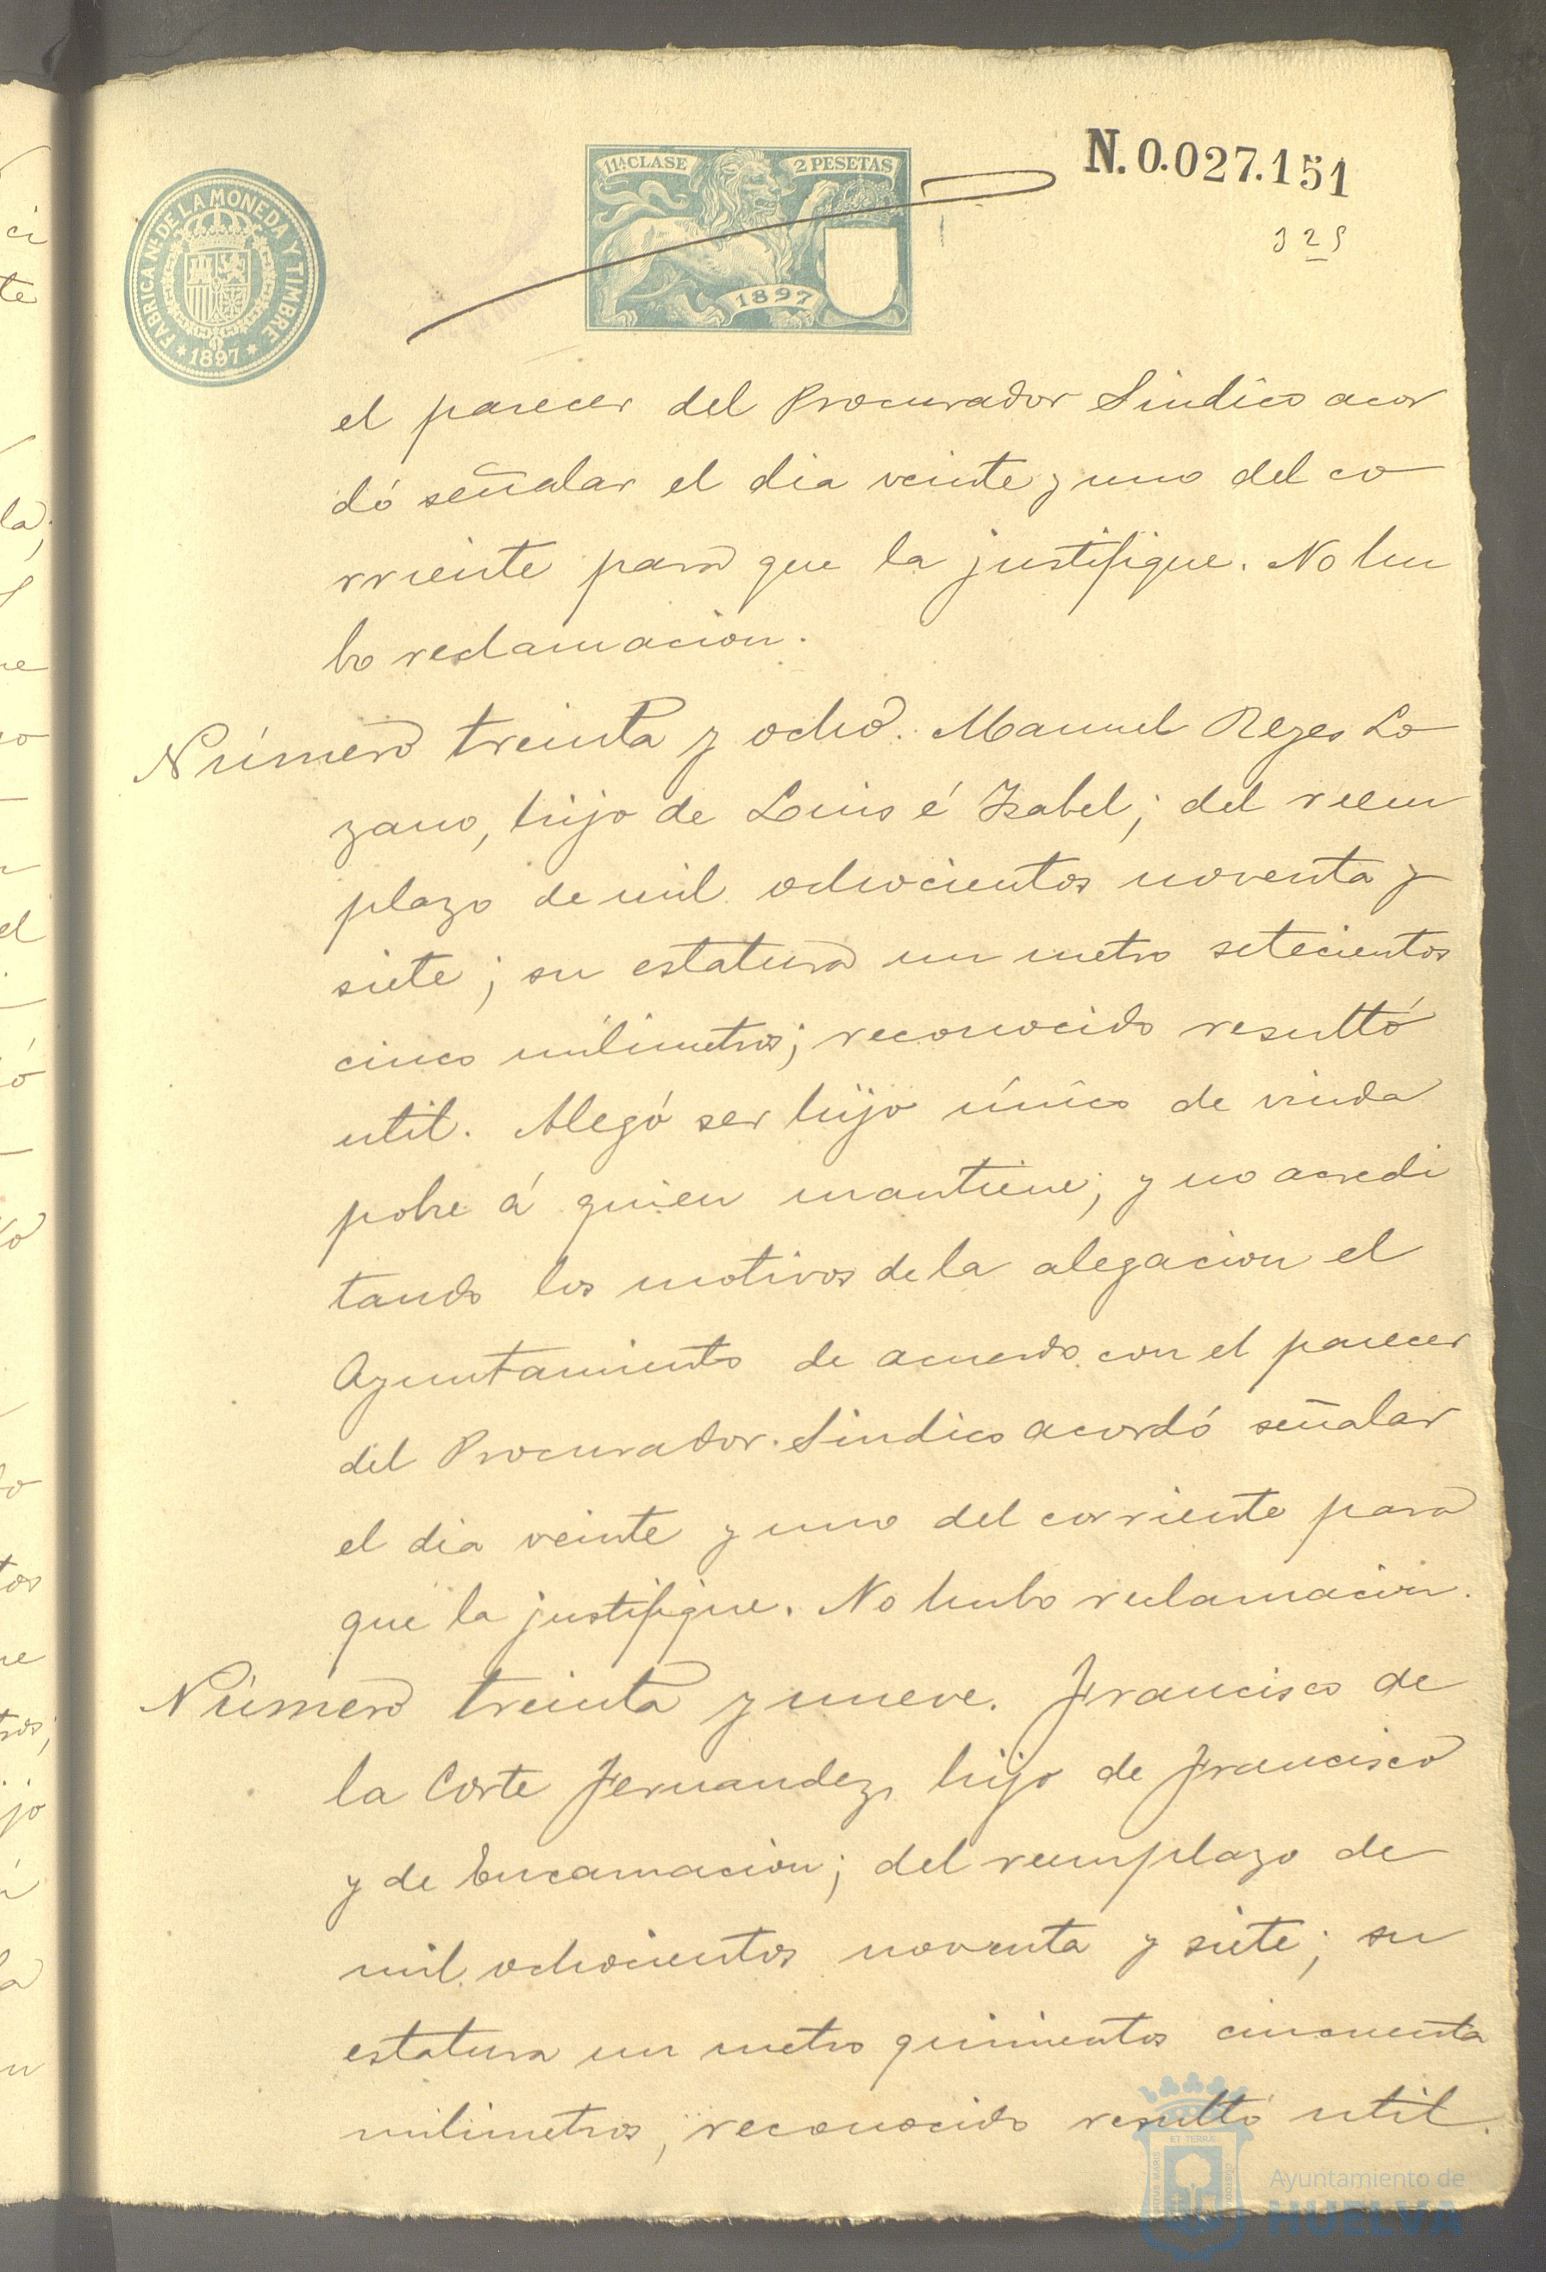 11ª CLASE 2 PESETAS
N. 0.027.151
FABRICA Nl. DE LA MONEDA Y TIMBRE
* 1897 *
1897
el parecer del Procurador Sindico acor
dó señalar el dia veinte y uno del co
rriente para que la justifique. No hu
bo reclamacion.
Número treinta y ocho. Manuel Reyes Lo
zano, hijo de Luis é Isabel; del reem
plazo de mil ochocientos noventa y
siete; su estatura un metro setecientos
cinco milimetros; reconocido resultó
util. Alegó ser hijo único de viuda
pobre á quien mantiene; y no acredi
tando los motivos de la alegacion el
Ayuntamiento de acuerdo con el parecer
del Procurador Sindico acordó señalar
el dia veinte y uno del corriente para
que la justifique. No hubo reclamacion.
Número treinta y nueve. Francisco de
la Corte Fernandez, hijo de Francisco
y de Encarnacion; del reemplazo de
mil ochocientos noventa y siete; su
estatura un metro quinientos cincuenta
milimetros, reconocido resultó util.
Ayuntamiento de
HUELVA